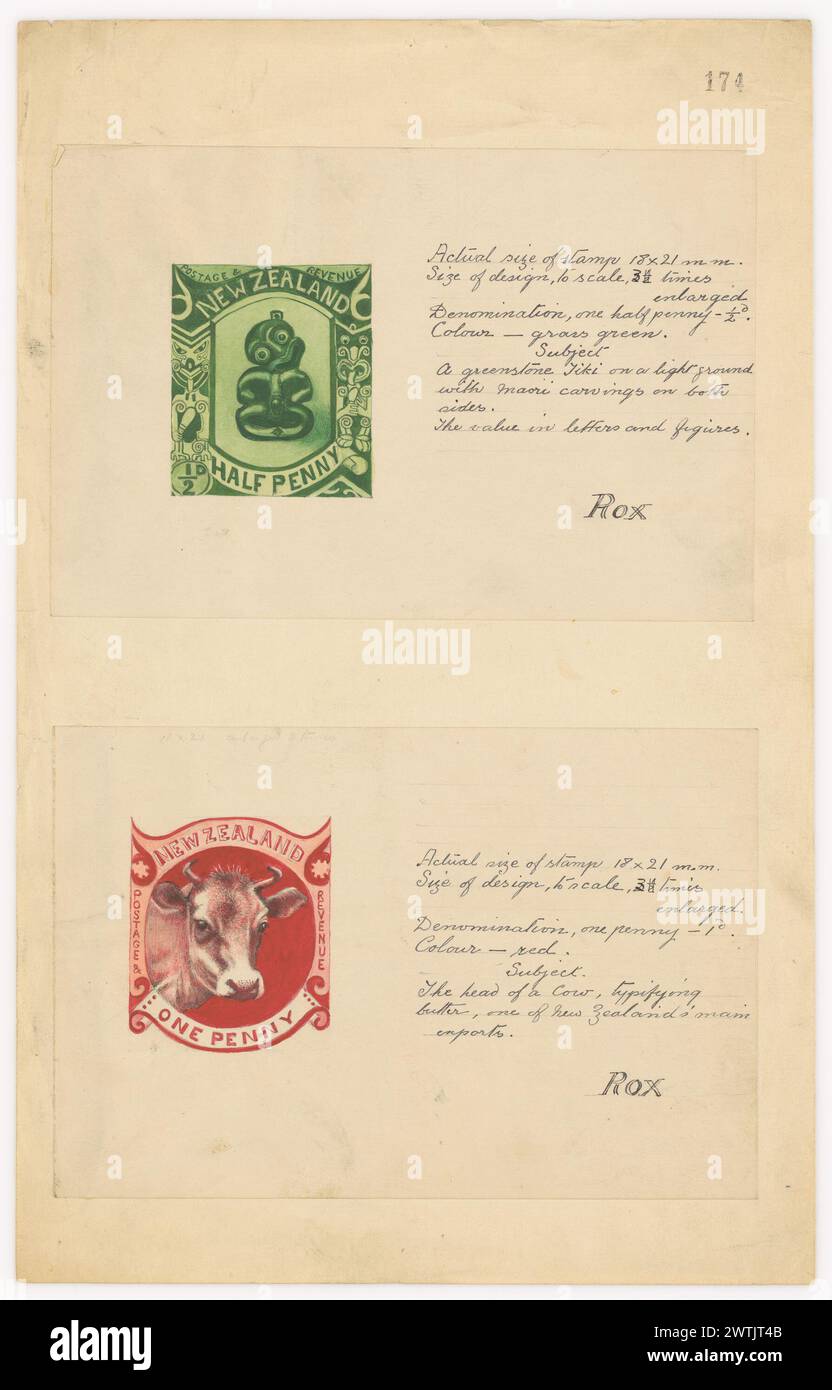 174
POSTAGE & REVENUE
NEW ZEALAND
HALF PENNY
½D
Actual size of stamp 18 x 21 m m.
Size of design, to scale, times
enlarged
Denomination, one half penny - ½d.
Colour — grass green.
Subject
A greenstone Tiki on a light ground
with Maori carvings on both
sides.
The value in letters and figures.
Rox
18 x 21
NEW ZEALAND
POSTAGE &
REVENUE
ONE PENNY
Actual size of stamp 18 x 21 m.m.
Size of design, to scale, times
enlarged.
Denomination, one penny - 1d.
Colour — red.
Subject.
The head of a Cow, typifying
butter, one of New Zealand's main
exports.
Rox
alamy
alamy
alamy
alamy
Image ID: 2WTJT4B
www.alamy.com